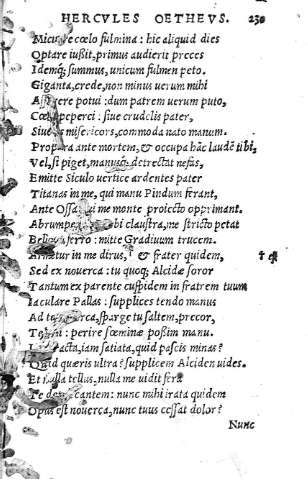 HERCVLES OETHEVS. 230
cœlo fulmina: hic aliquid dies
Optare iußit, primus audierit preces
Idemq; summus, unicum fulmen peto.
Giganta, crede, non minus uerum mihi
potui: dum patrem uerum puto,
peperci: siue crudelis pater,
misericors, commoda nato manum.
ante mortem, & occupa hāc laudē tibi,
Vel, si piget, detrectat nefas,
Emitte Siculo uertice ardentes pater
Titanas in me, qui manu Pindum ferant,
Ante me monte proiecto opprimant.
claustra, me stricto petat
ferro: mitte Gradiuum trucem.
in me dirus, & frater quidem,
Sed ex nouerca: tu quoq; Alcidæ soror
Tantum ex parente cuspidem in fratrem tuum
Iaculare Pallas: supplices tendo manus
Ad sparge tu saltem, precor,
perire fœminæ poßim manu.
iam satiata, quid pascis minas?
quæris ultra? supplicem Alciden uides.
Et tellus, nulla me uidit fera
Te cantem: nunc mihi irata quidem
est nouerca, nunc tuus cessat dolor?
Nunc